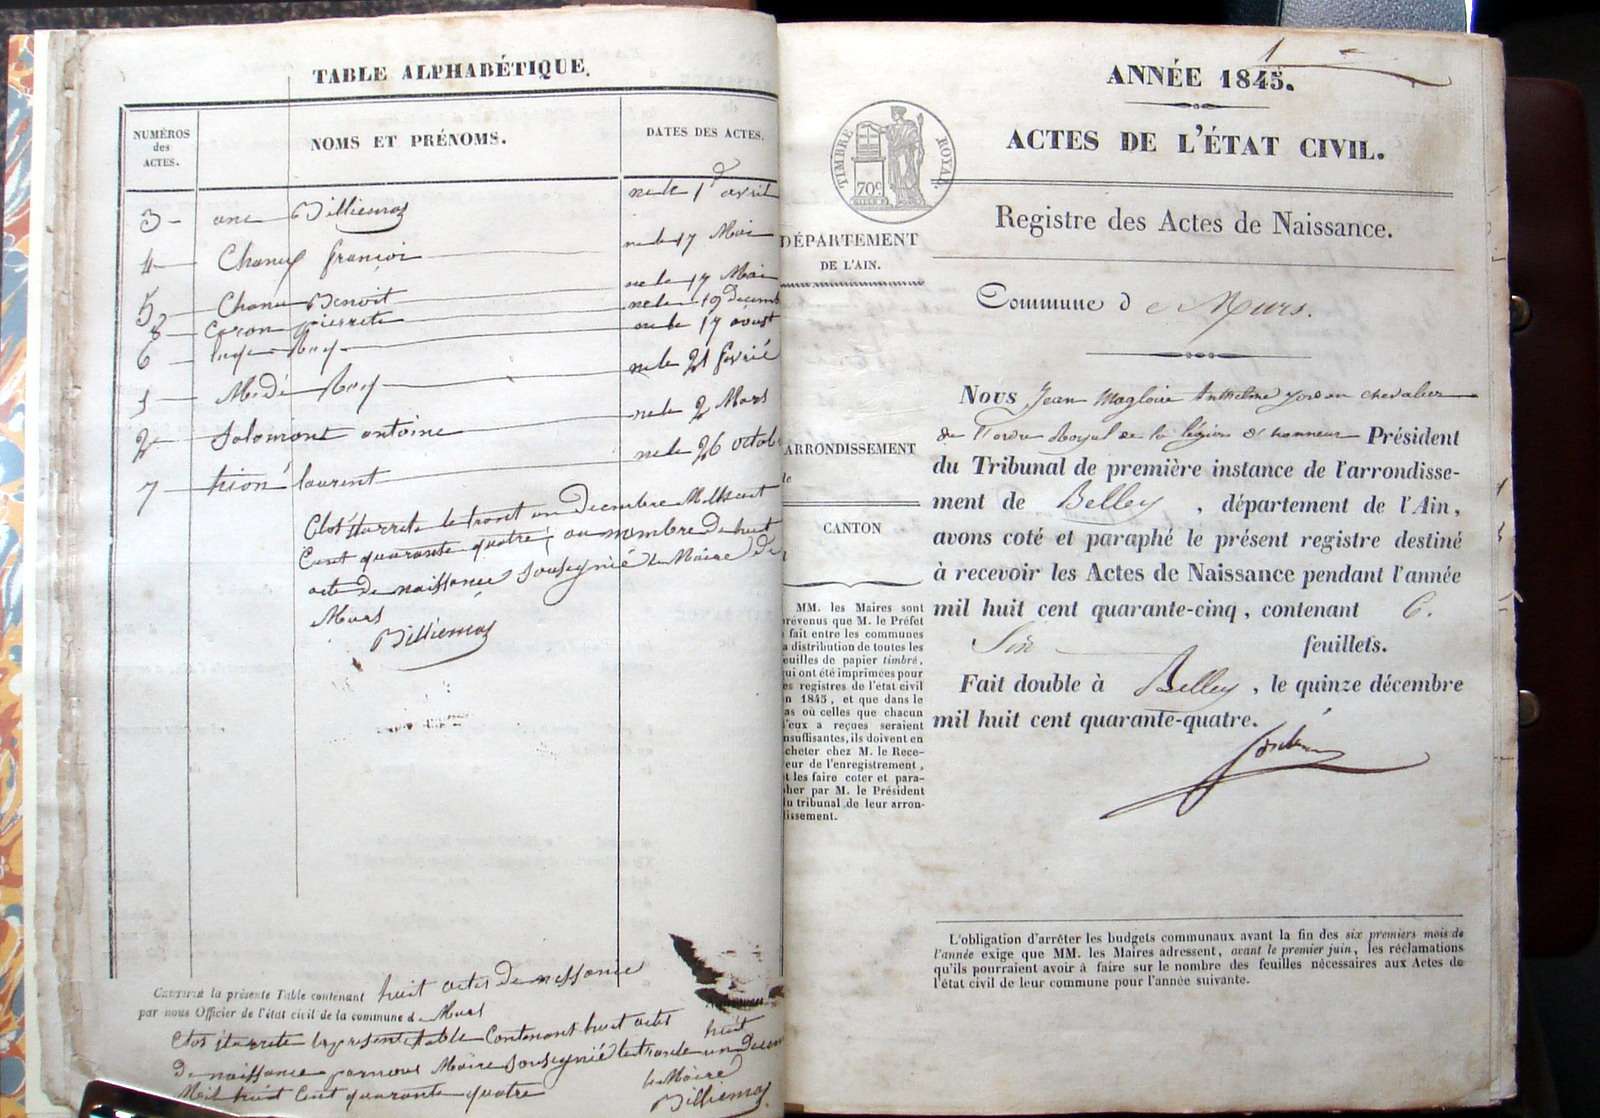 TABLE ALPHABÉTIQUE.
NUMÉROS
des
ACTES.
NOMS ET PRÉNOMS.
DATES DES ACTES.
3 ane Billiemaz né le 1r avril
4 Chanel françoi né le 17 Mai
5 Chanel Benoit né le 17 Mai
8 Caron pierrete né le 19 décemb
6 Roy né le 17 aoust
1 Roy né le 21 fevrié
2 Salomont antoine né le 2 Mars
7 laurent né le 26 octob
Clos et arreté le trent un Decembre Mil huit
Cent quarante quatre, au nombre De huit
acte De naissance Sousignié le Maire De
Murs
Billiemaz
CERTIFIÉ la présente Table contenant huit actes De naissance
par nous Officier de l'état civil de la commune d Murs
Clos et arreté la presente table Contenant huit actes huit
De naissance par nous Maire sousignié le trante un Decem
Mil huit Cent quarante quatre le Maire
Billiemaz
1
ANNÉE 1845.
ACTES DE L'ÉTAT CIVIL.
TIMBRE ROYAL
70c
Registre des Actes de Naissance.
DÉPARTEMENT
DE L'AIN.
Commune d e Murs.
Nous Jean Magloire Anthelme Jordan chevalier
de l'ordre Royal de la légion d'honneur Président
du Tribunal de première instance de l'arrondisse-
ment de Belley, département de l'Ain,
avons coté et paraphé le présent registre destiné
à recevoir les Actes de Naissance pendant l'année
mil huit cent quarante-cinq, contenant 6.
Six feuillets.
Fait double à Belley, le quinze décembre
mil huit cent quarante-quatre.
Jordan
ARRONDISSEMENT
CANTON
MM. les Maires sont
prévenus que M. le Préfet
fait entre les communes
la distribution de toutes les
feuilles de papier timbré,
qui ont été imprimées pour
les registres de l'état civil
en 1845, et que dans le
cas où celles que chacun
d'eux a reçues seraient
insuffisantes, ils doivent en
acheter chez M. le Rece-
veur de l'enregistrement,
et les faire coter et para-
pher par M. le Président
du tribunal de leur arron-
dissement.
L'obligation d'arrêter les budgets communaux avant la fin des six premiers mois de
l'année exige que MM. les Maires adressent, avant le premier juin, les réclamations
qu'ils pourraient avoir à faire sur le nombre des feuilles nécessaires aux Actes de
l'état civil de leur commune pour l'année suivante.